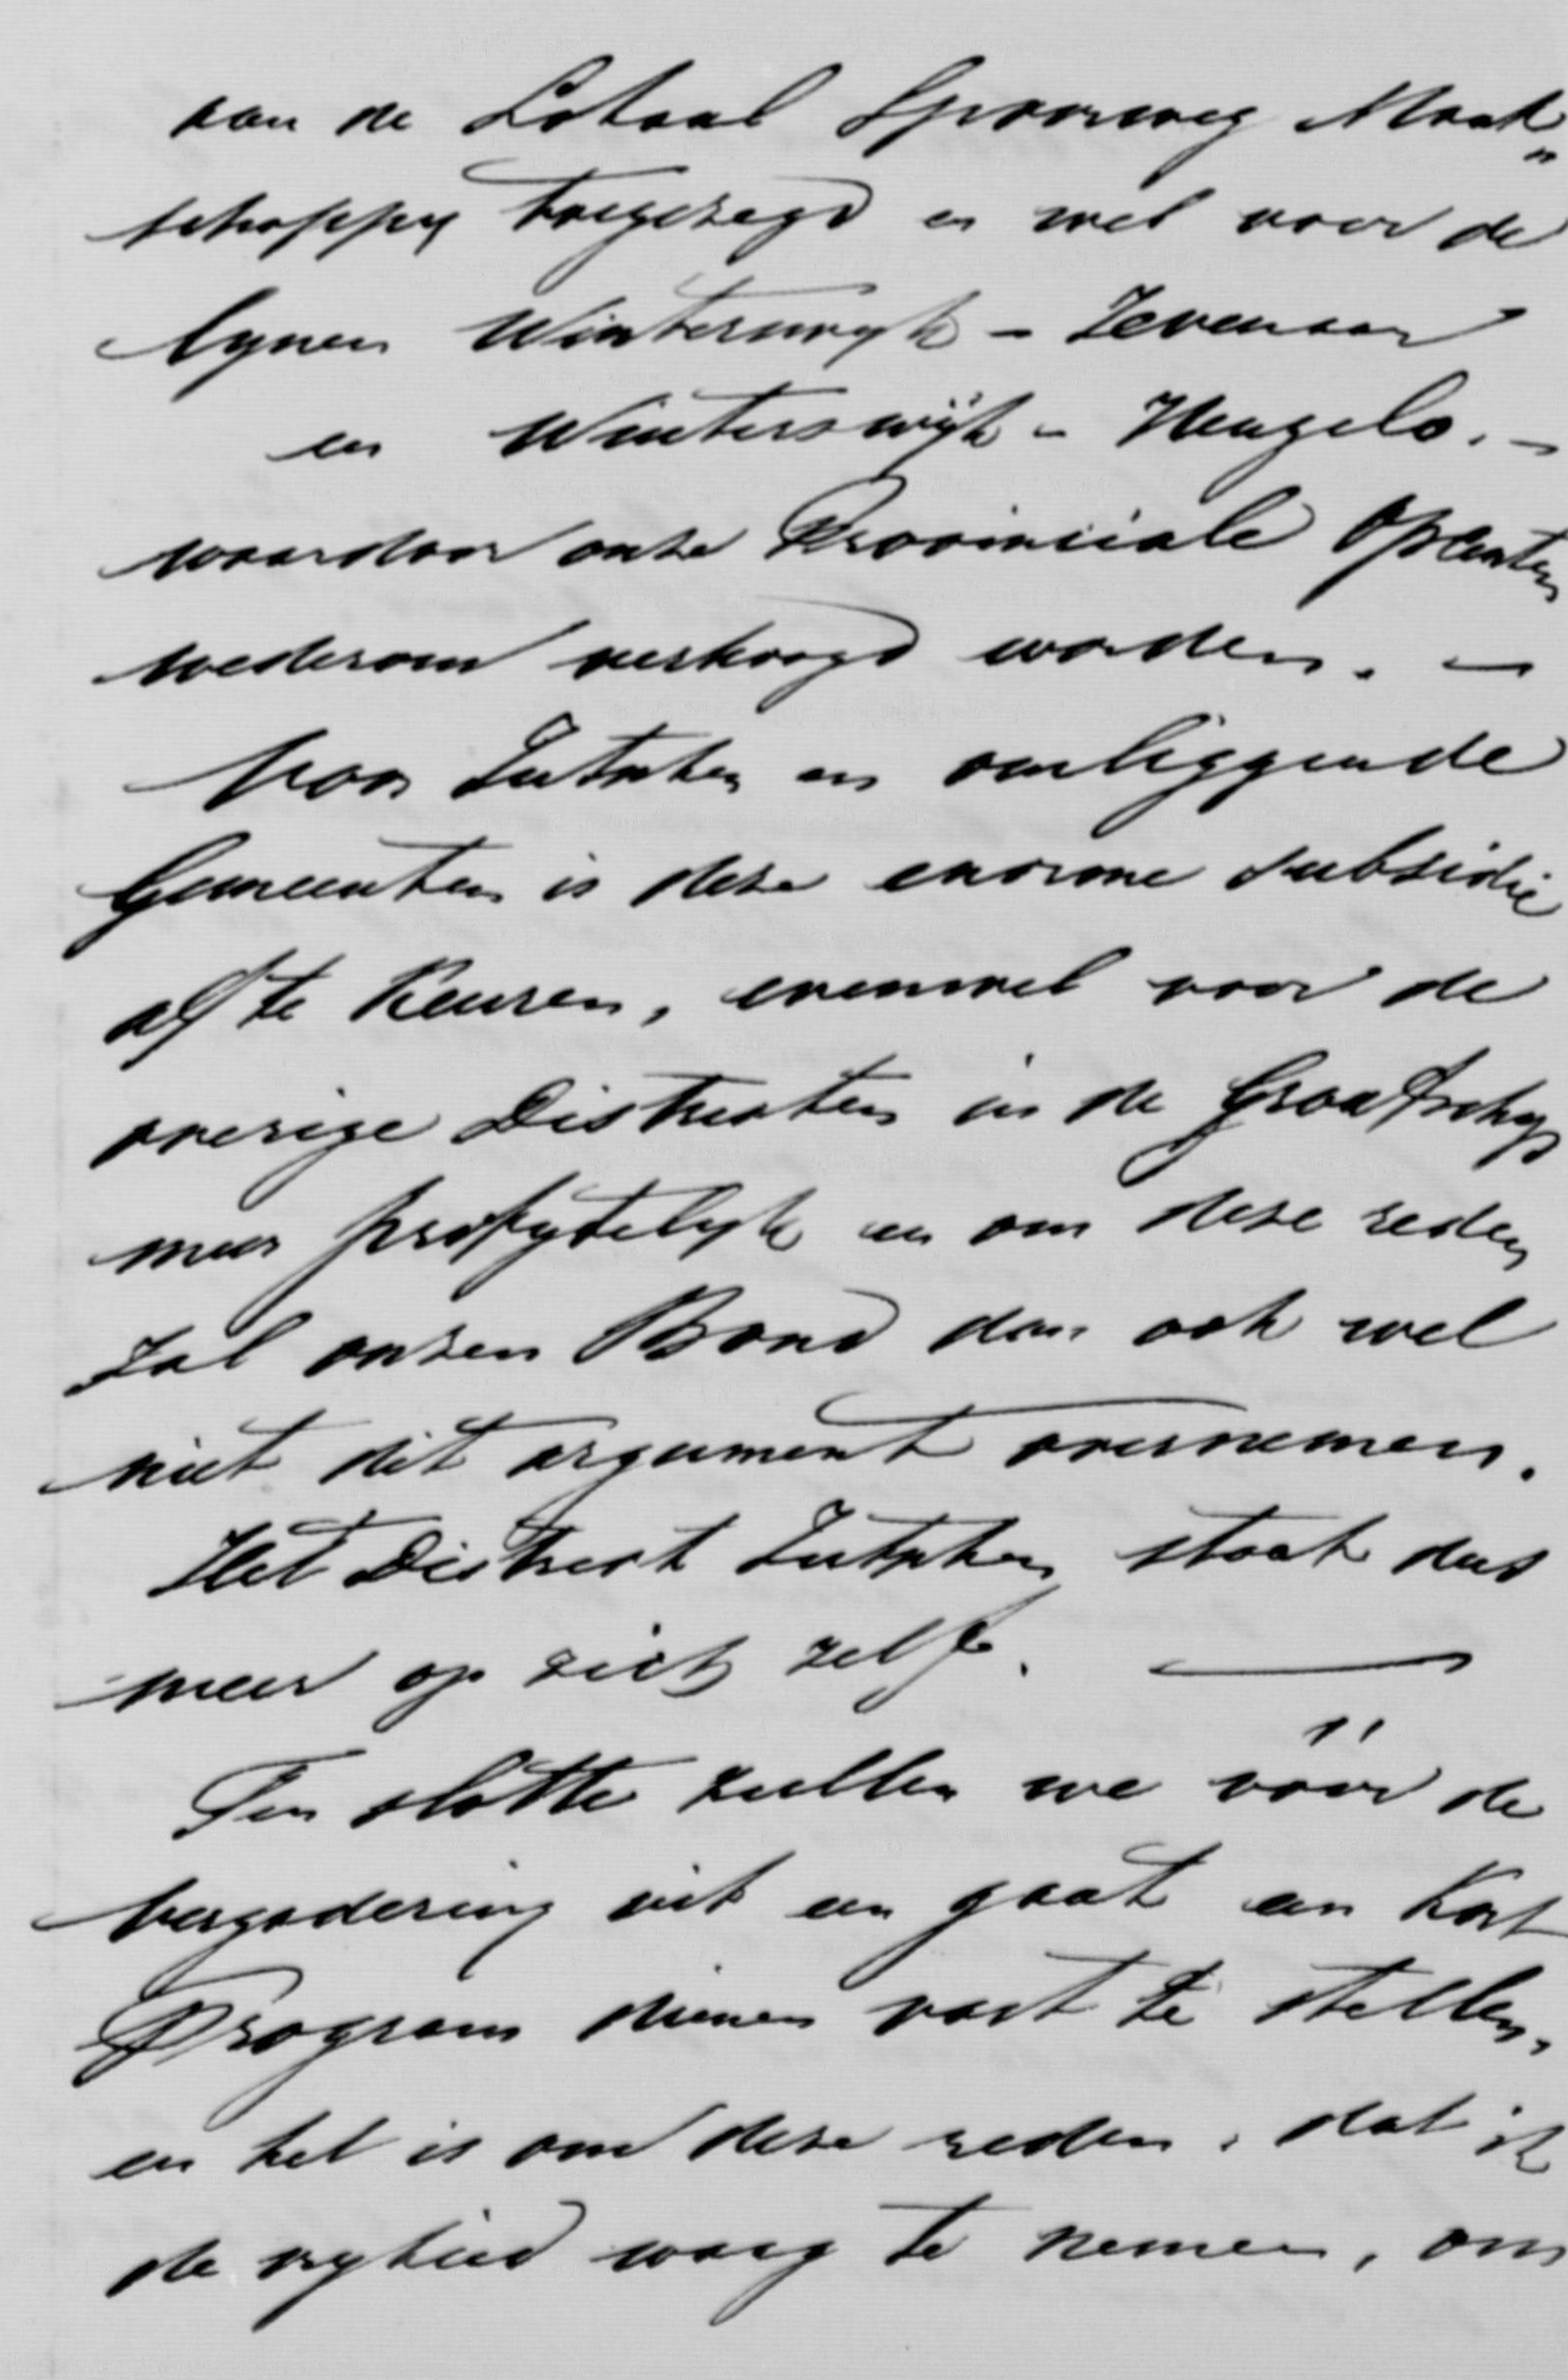 aan de Lokaal Spoorweg Maat„
schappy toegezegd en wel voor de
lynen Winterswyk - Zevenaar
en Winterswijk - Hengelo. -
waardoor onze Provinciale Opcenten
wederom verhoogd worden. -
Voor Zutphen en omliggende
Gemeenten is deze enorme subsidie
af te keuren, evenwel voor de
overige Districten in de Graafschap
meer profytelyk en om deze reden
zal onzen Bond dan ook wel
niet dit argument overnemen.
Het District Zutphen staat dus
meer op zich zelf. —
Ten slotte zullen we vóór de
vergadering uit een gaat een kort
Program dienen vast te stellen,
en het is om deze reden, dat ik
de vryheid waag te nemen, om